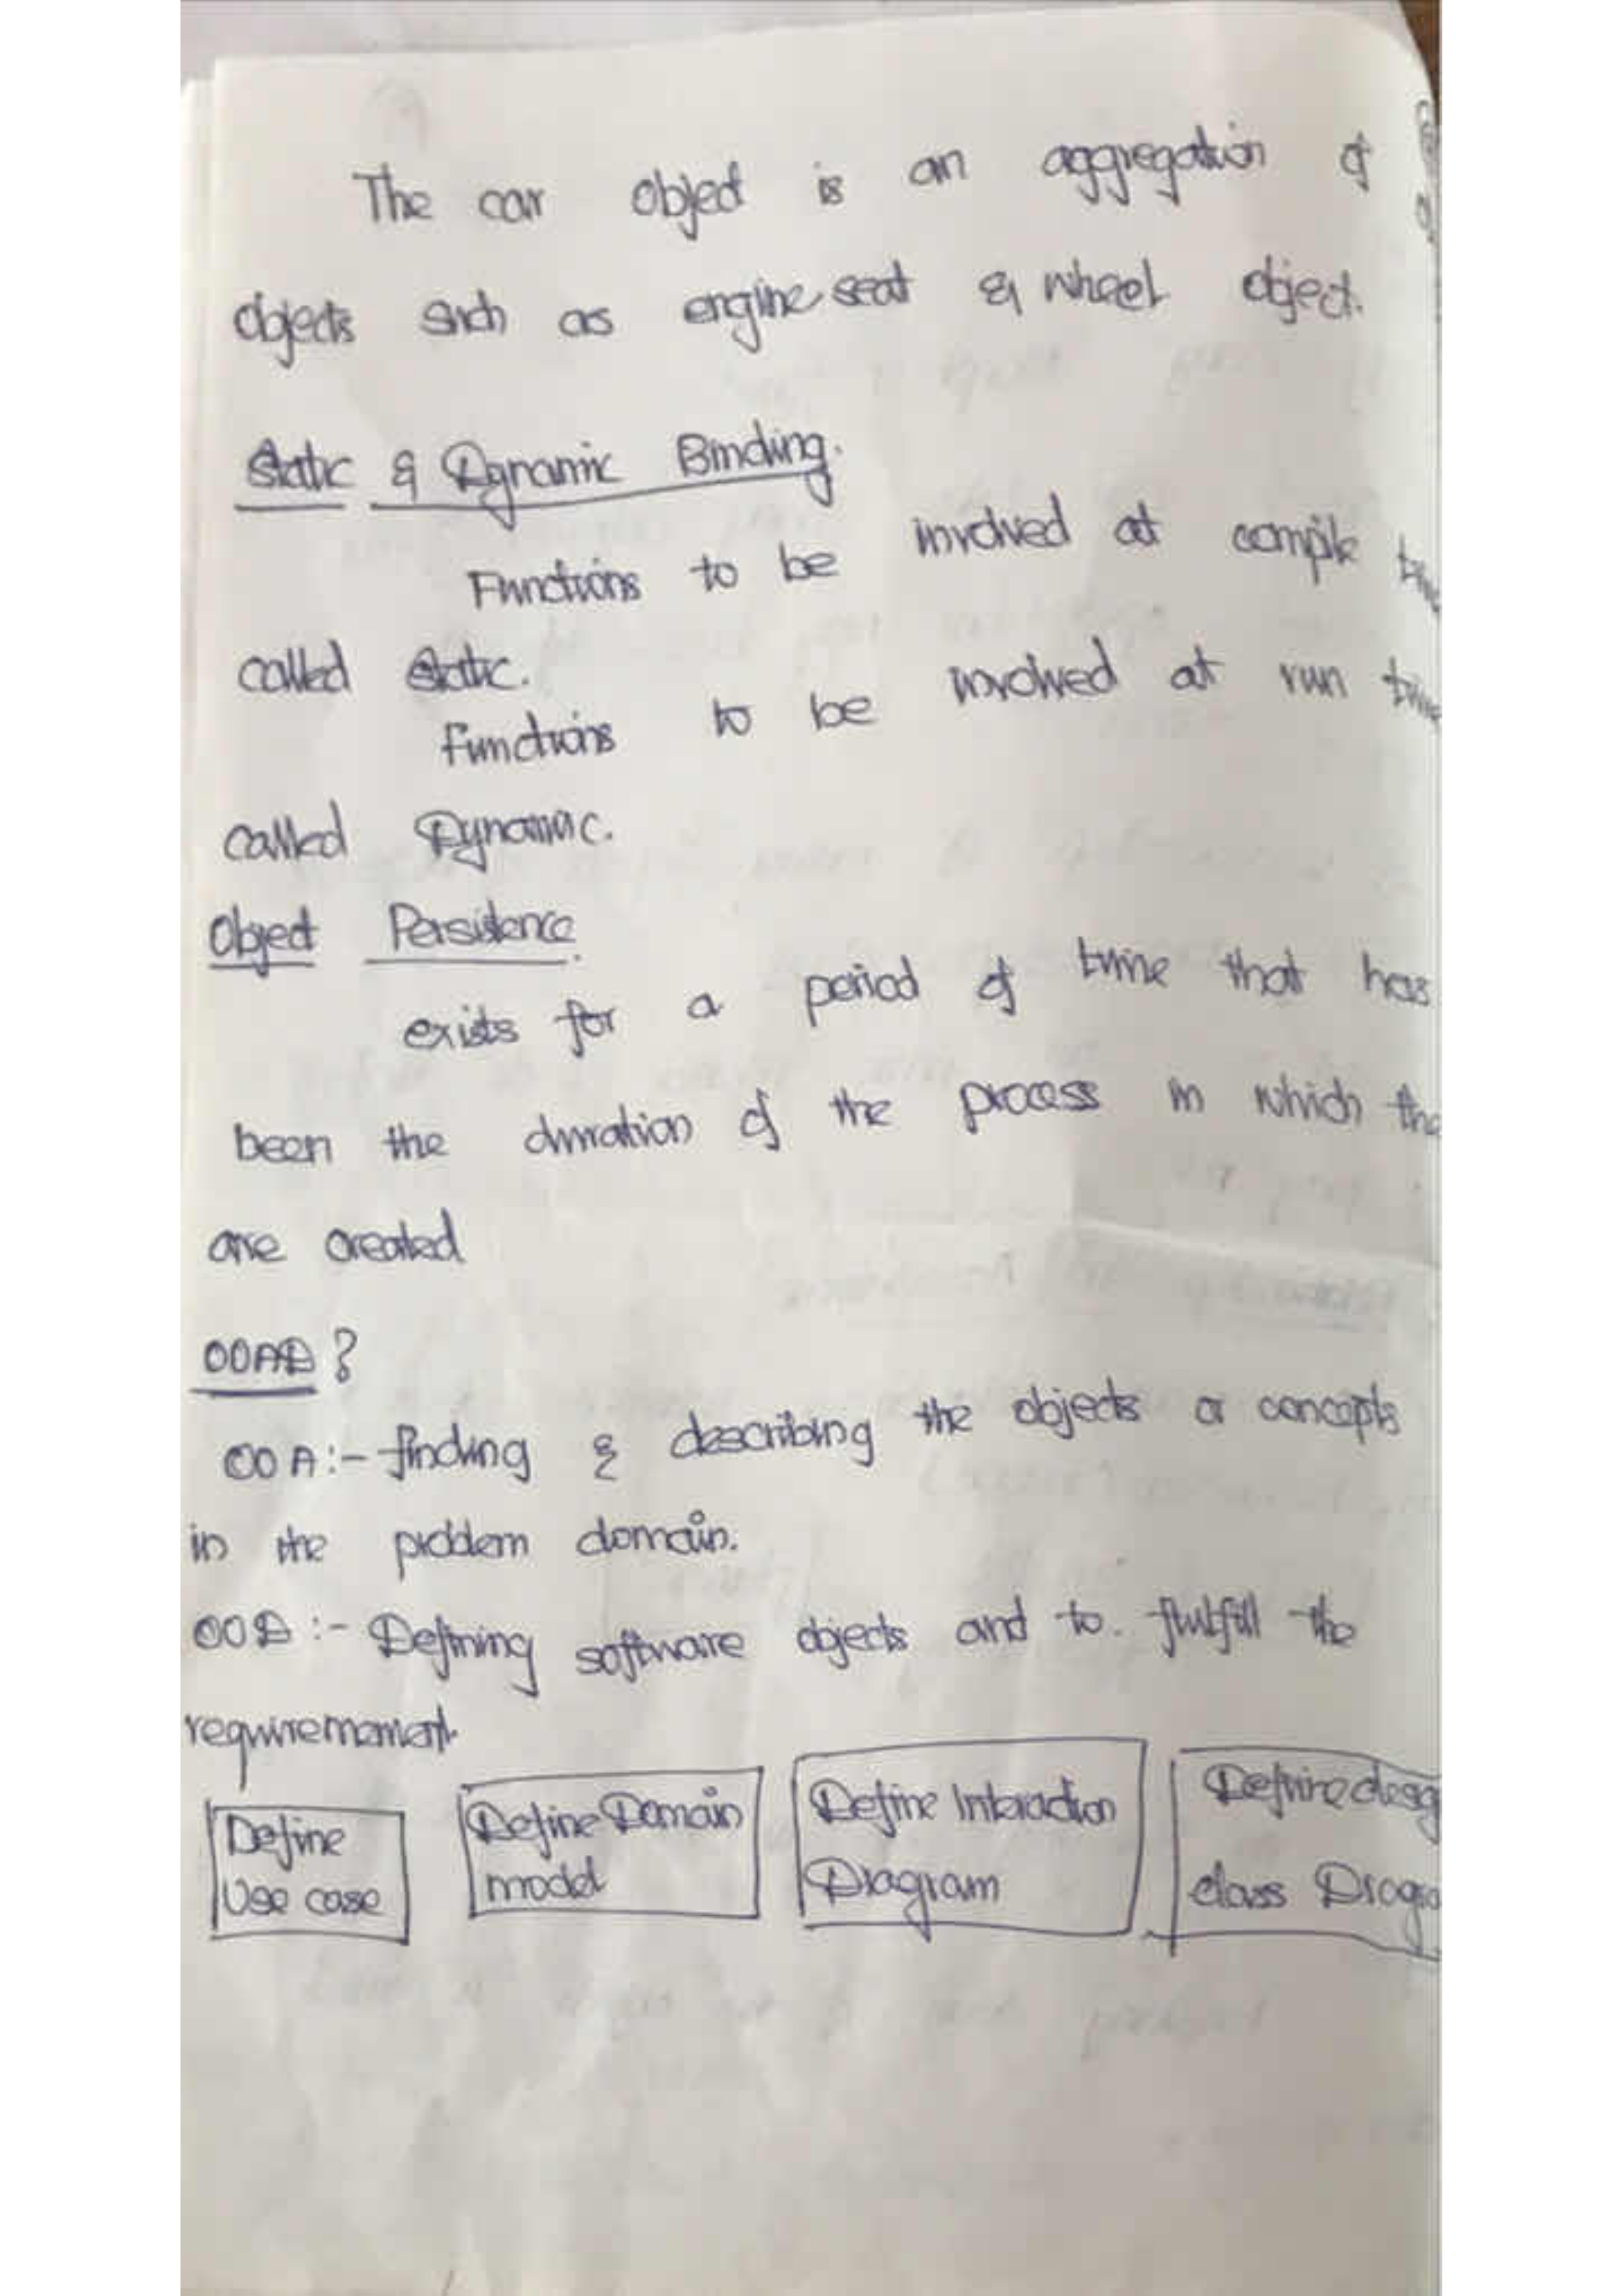 The car object is an aggregation of
objects such as engine seat & wheel object.
Static & Dynamic Binding.
Functions to be involved at compile time
called static.
Functions to be involved at run time
called Dynamic.
Object Persistence.
exists for a period of time that has
been the duration of the process in which the
are created
OOAD?
OOA:- finding & describing the objects or concepts
in the problem domain.
OOD:- Defining software objects and to. fulfill the
requiremement.
Define
Use case
Define Domain
model
Define Interaction
Diagram
Define desig
class Diagra